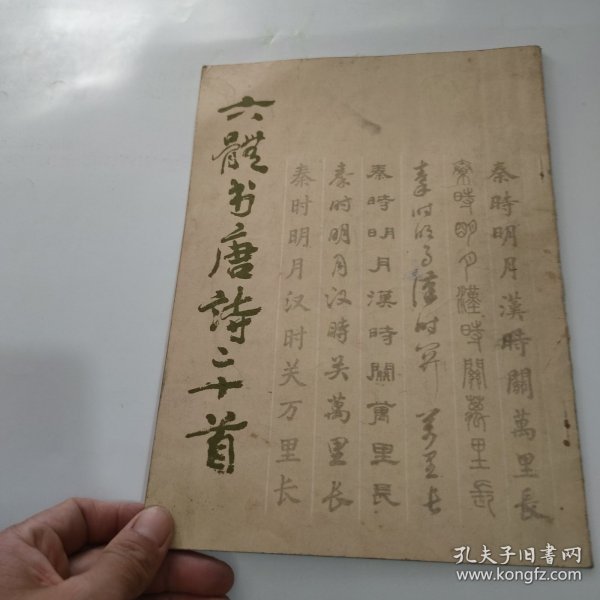 六體书唐詩二十首
秦時明月漢時關萬里長
秦時明月漢時關萬里長
秦时明月漢时关萬里長
秦時明月漢時關萬里長
秦时明月汉時关萬里长
秦时明月汉时关万里长
孔夫子旧书网
www.kongfz.com